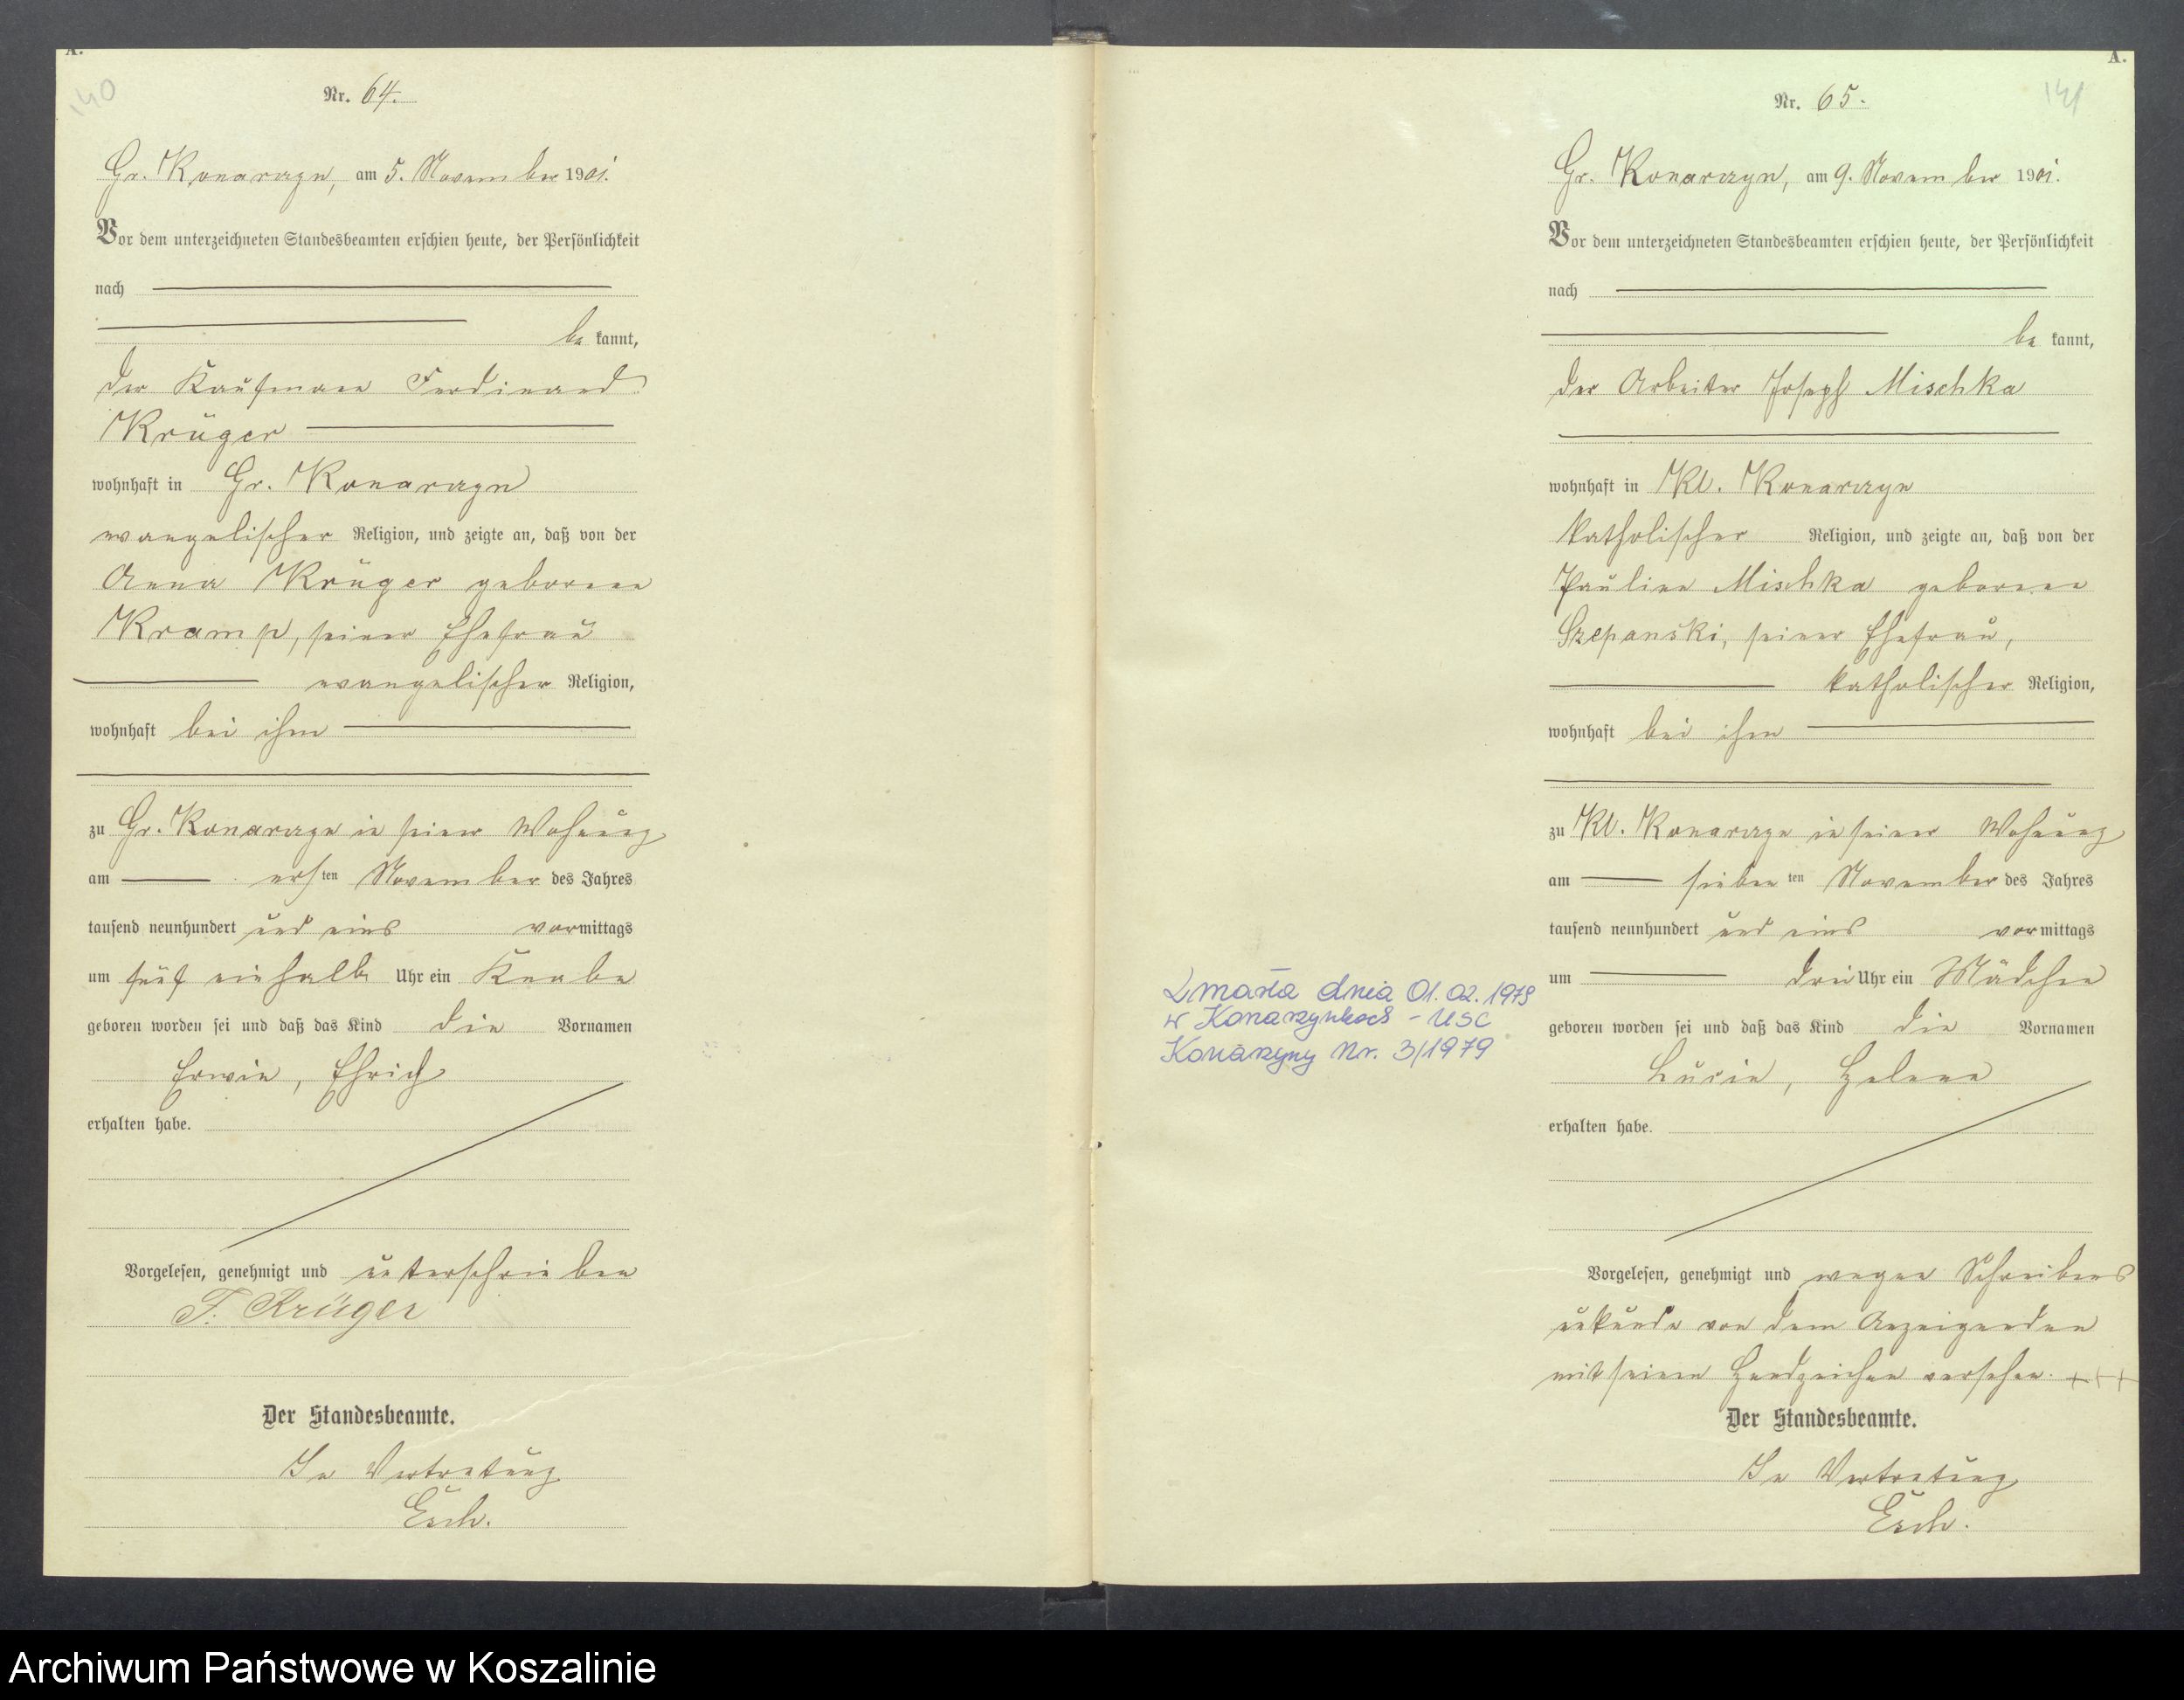 A.
140
Nr. 64.
Gr. Konarzyn, am 5. November 1901.
Vor dem unterzeichneten Standesbeamten erschien heute, der Persönlichkeit
nach
be kannt,
der Kaufmann Ferdinand
Krüger
wohnhaft in Gr. Konarzyn
evangelischer Religion, und zeigte an, daß von der
Anna Krüger geborenen
Kramp, seiner Ehefrau
evangelischer Religion,
wohnhaft bei ihm
zu Gr. Konarzyn in seiner Wohnung
am ersten November des Jahres
tausend neunhundert und eins vormittags
um fünf einhalb Uhr ein Knabe
geboren worden sei und daß das Kind die Vornamen
Erwin, Ehrich
erhalten habe.
Vorgelesen, genehmigt und unterschrieben
F. Krüger
Der Standesbeamte.
In Vertretung
Esch.
A.
141
Nr. 65.
Gr. Konarzyn, am 9. November 1901.
Vor dem unterzeichneten Standesbeamten erschien heute, der Persönlichkeit
nach
be kannt,
der Arbeiter Joseph Mischka
wohnhaft in Kl. Konarzyn
katholischer Religion, und zeigte an, daß von der
Pauline Mischka geborenen
Szepanski, seiner Ehefrau,
katholischer Religion,
wohnhaft bei ihm
zu Kl. Konarzyn in seiner Wohnung
am siebenten November des Jahres
tausend neunhundert und eins vormittags
um drei Uhr ein Mädchen
geboren worden sei und daß das Kind die Vornamen
Lucie, Helene
erhalten habe.
Vorgelesen, genehmigt und wegen Schreibens
unkunde von dem Anzeigenden
mit seinem Handzeichen versehen. +++
Der Standesbeamte.
In Vertretung
Esch.
Zmarła dnia 01.02.1979
w Konarzynkach - USC
Konarzyny Nr. 3/1979
Archiwum Państwowe w Koszalinie